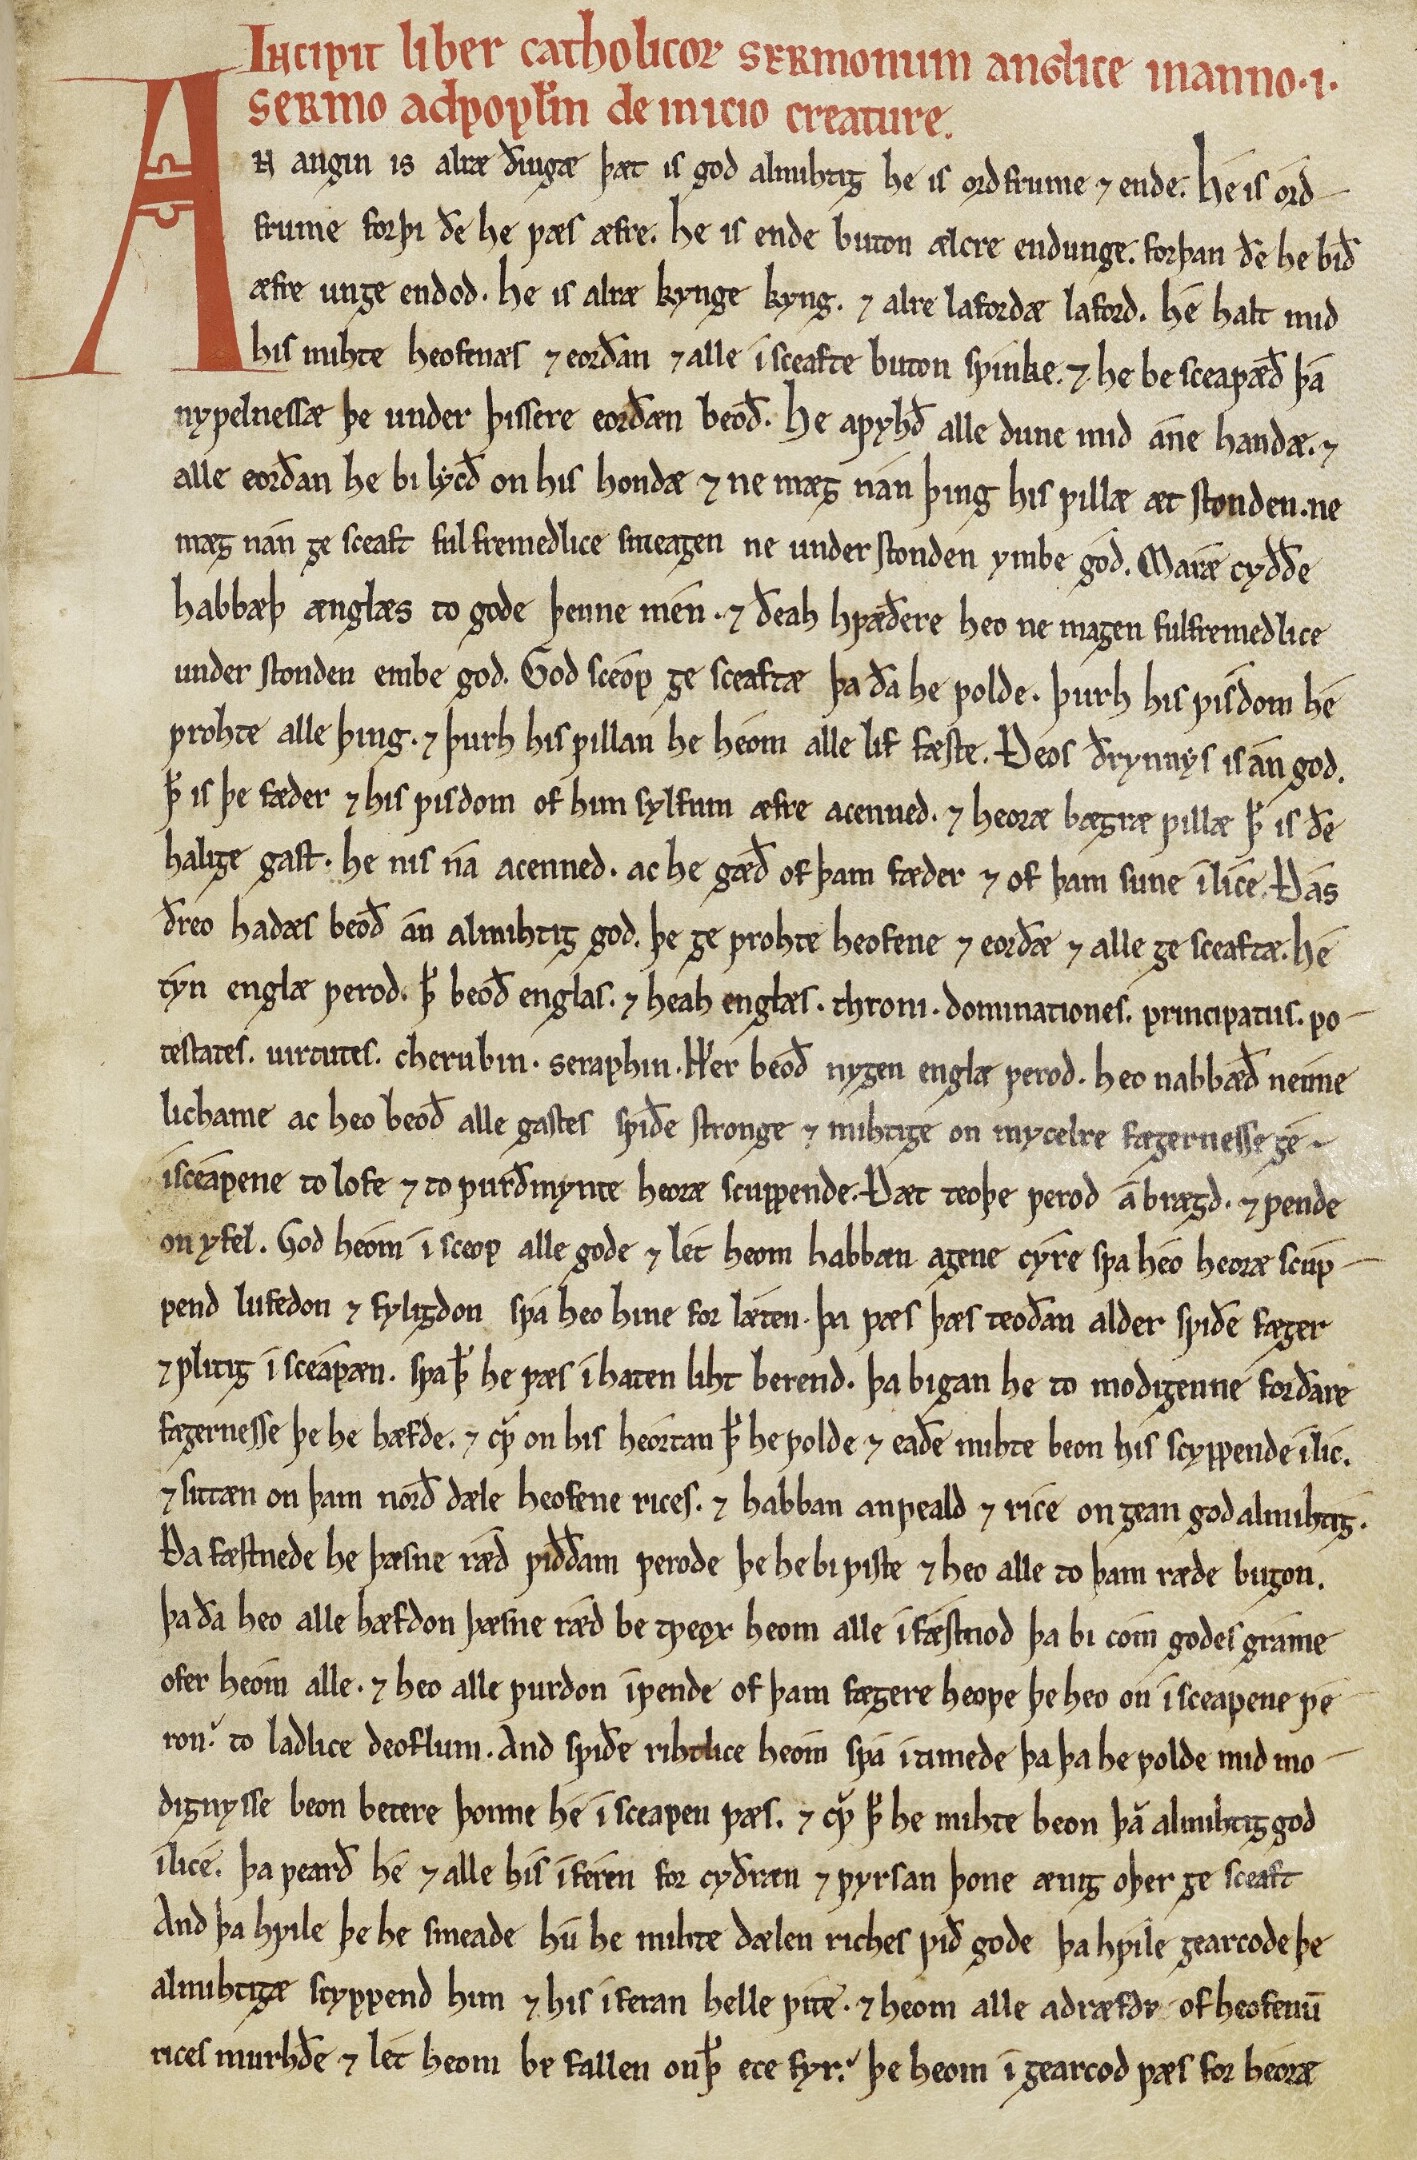 Incipit liber catholicoꝝ sermonum anglice in anno .i.
Sermo ad popl̄m de inicio creature.
AN angin is alræ ðingæ þæt is god almihtig he is ordfrume ⁊ ende. He is ord-
frume forþi ðe he ƿæs æfre. he is ende buton ælcre endunge. forþan ðe he bið
æfre unge endod. he is alræ kynge kyng. ⁊ alre lafordæ laford. he halt mid
his mihte heofenæs ⁊ eorðan ⁊ alle isceafte buton sƿinke. ⁊ he be sceaƿæð þa
nyƿelnessæ þe under þissere eorðæn beoð. He aƿyhð alle dune mid ane handæ. ⁊
alle eorðan he bi lycð on his hondæ ⁊ ne mæg nan þing his ƿillæ æt stonden. ne
mæg nan ge sceaft ful fremedlice smeagen ne under stonden ymbe god. Maræ cyððe
habbæþ ænglæs to gode þenne men. ⁊ ðeah hƿæðere heo ne magen fulfremedlice
under stonden embe god. God sceop ge sceaftæ þa ða he ƿolde. þurh his ƿisdom he
ƿrohte alle þing. ⁊ þurh his ƿillan he heom alle lif fæste. Ðeos ðrynnys is an god.
ꝥ is þe fæder ⁊ his ƿisdom of him sylfum æfre acenned. ⁊ heoræ bægræ ƿillæ ꝥ is ðe
halige gast. he nis na acenned. ac he gæð of þam fæder ⁊ of þam sune ilice. Ðas
ðreo hadæs beoð an almihtig god. þe ge ƿrohte heofene ⁊ eorðæ ⁊ alle ge sceaftæ. he
tyn englæ ƿerod. ꝥ beoð englas. ⁊ heah englæs. throni. dominationes. principatus. po-
testates. uirtutes. cherubin. seraphin. Her beoð nygen englæ ƿerod. heo nabbæð nenne
lichame ac heo beoð alle gastes sƿiðe stronge ⁊ mihtige on mycelre fægernesse ge-
isceapene to lofe ⁊ to ƿurðmynte heoræ scuppende. Ðæt teoþe ƿerod abrægd. ⁊ ƿende
on yfel. God heom i sceop alle gode ⁊ let heom habbæn agene cyre sƿa heo heoræ scup-
pend lufedon ⁊ fyligdon sƿa heo hine for læten. þa ƿæs þæs teoðan alder sƿiðe fæger
⁊ ƿlitig i sceapæn. sƿa ꝥ he ƿæs ihaten liht berend. þa bigan he to modigenne for ðare
fægernesse þe he hæfde. ⁊ cƿ̄ on his heortan ꝥ he ƿolde ⁊ eaðe mihte beon his scyppende ilic.
⁊ sittæn on þam norð dæle heofene rices. ⁊ habban anƿeald ⁊ rice on gean god almihtig.
Ða fæstnede he þæsne ræd ƿið ðam ƿerode þe he bi ƿiste ⁊ heo alle to þam ræde bugon.
þa ða heo alle hæfdon þæsne ræd be tƿeox heom alle ifæstnod þa bi com godes grame
ofer heom alle. ⁊ heo alle ƿurdon iƿende of þam fægere heoƿe þe heo on isceapene ƿe-
ron. to ladlice deoflum. And sƿiðe rihtlice heom sƿa itimede þa þa he ƿolde mid mo-
dignysse beon betere þonne he i sceapen ƿæs. ⁊ cƿ̄ ꝥ he mihte beon þā almihtig god
ilice. þa ƿearð he ⁊ alle his iferen for cyðræn ⁊ ƿyrsan þone ænig oþer ge sceaft
And þa hƿile þe he smeade hu he mihte dælen riches ƿið gode þa hƿile gearcode þe
almihtigæ scyppend him ⁊ his iferan helle ƿite. ⁊ heom alle adræfde of heofenū
rices murhðe ⁊ let heom be fallen on ꝥ ece fyr. þe heom i gearcod ƿæs for heoræ